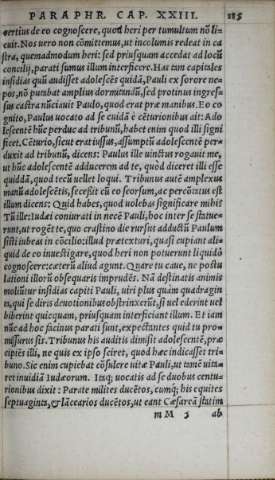 PARAPHR. CAP. XXIII. 185
certius de eo cognoscere, quod heri per tumultum nõ li-
cuit. Nos uero non cõmittemus, ut incolumis redeat in ca
stra, quemadmodum heri: sed priusquam accedat ad locũ
concilij, parati sumus illum interficere. Has tam capitales
insidias quũ audisset adolescẽs quidã, Pauli ex sorore ne-
pos, nõ putabat amplius dormitandũ, sed protinus ingres
sus castra nũciauit Paulo, quod erat præ manibus. Eo co
gnito, Paulus uocato ad se cuidã è cẽturionibus ait: Ado
lescentẽ hũc perduc ad tribunũ, habet enim quod illi signi
ficet. Cẽturio, sicut erat iussus, assumptũ adolescentẽ per-
duxit ad tribunũ, dicens: Paulus ille uinctus rogauit me,
ut hũc adolescentẽ adducerem ad te, quòd diceret illi esse
quiddã, quod tecũ uellet loqui. Tribunus autẽ amplexus
manũ adolescẽtis, secessit cũ eo seorsum, ac percõtatus est
illum dicens: Quid habes, quod uolebas significare mihi?
Tũ ille: Iudæi coniurati in necẽ Pauli, hoc inter se statue-
runt, ut rogẽt te, quo crastino die rursst adductũ Paulum
sisti iubeas in cõcilio: illud prætexturi, quasi cupiant ali-
quid de eo inuestigare, quod heri non potuerunt liquidò
cognoscere: cæterũ aliud agunt. Quare tu caue, ne postu
lationi illorũ obsequaris imprudẽs. Nã destinatis animis
moliuntur insidias capiti Pauli, uiri plus quàm quadragin
ta, qui se diris deuotionibus obstrinxerũt, si uel ederint uel
biberint quicquam, priusquam interficiant illum. Et iam
nũc ad hoc facinus parati sunt, expectantes quid tu pro-
missurus sis. Tribunus his auditis dimisit adolescentẽ, præ
cipiẽs illi, ne quis ex ipso sciret, quod hæc indicasset tri-
buno. Sic enim cupiebat cõsulere uitæ Pauli, ut tamẽ uita-
ret inuidiã Iudæorum. Itaq; uocatis ad se duobus centu-
rionibus dixit: Parate milites ducẽtos, cumq; his equites
septuaginta, & lãcearios ducẽtos, ut eant Cæsaream statim
mM 3 ab